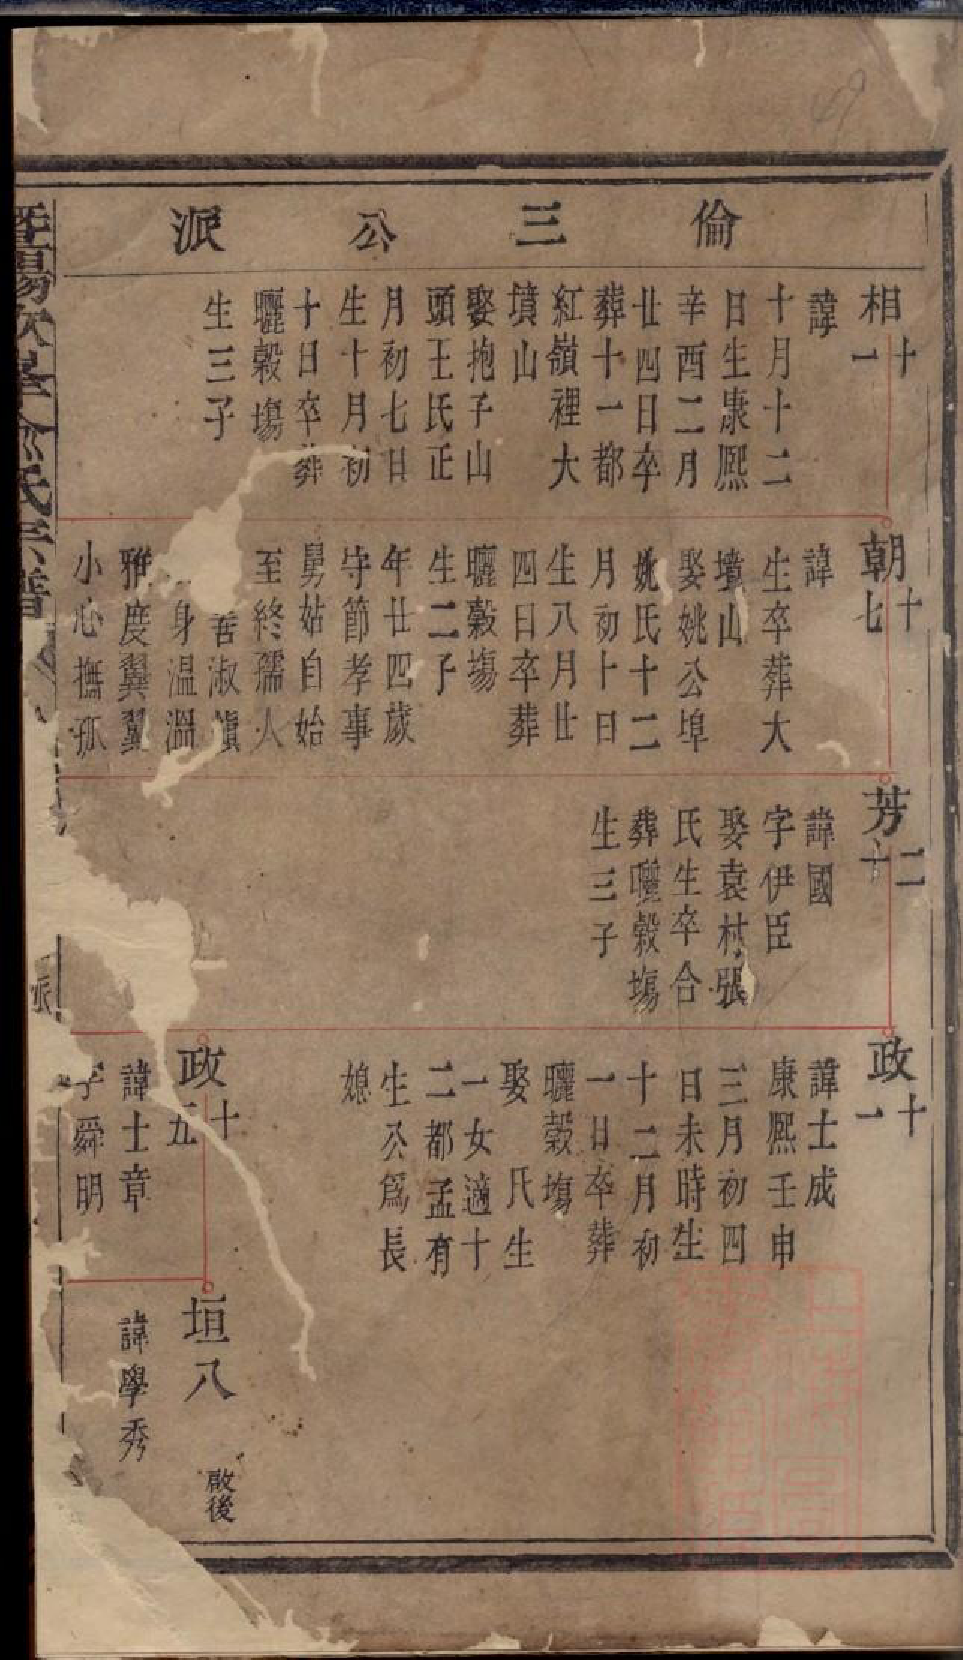 倫三公派
相十一
諱
十月十二
日生康熙
辛酉二月
廿四日卒
葬十一都
紅嶺裡大
墳山
娶抱子山
頭王氏正
月初七日
生十月初
十日卒葬
曬穀塲
生三子
朝十七
諱
生卒葬大
墳山
娶姚公埠
姚氏十二
月初十日
生八月廿
四日卒葬
曬穀塲
生二子
年廿四歲
守節孝事
舅姑自始
至終孺人
善淑慎
身温溫
雅度翼翼
小心撫孤
芳二十
諱國
字伊臣
娶袁村張
氏生卒合
葬曬穀塲
生三子
政十一
諱士成
康熙壬申
三月初四
日未時生
十二月初
一日卒葬
曬穀塲
娶 氏生
一女適十
二都孟有
生公爲長
媳
政十五
諱士章
字舜明
垣八
啟後
諱學秀